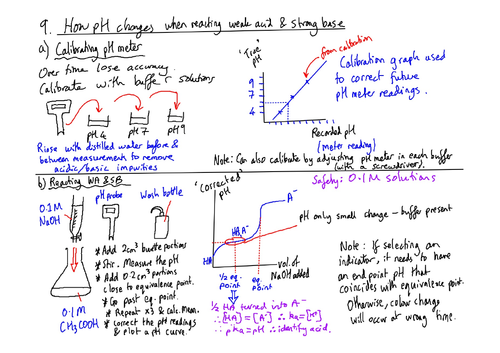 9. How pH changes when reacting weak acid & strong base
a) Calibrating pH meter
Over time lose accuracy.
Calibrate with buffer solutions
pH4 pH7 pH9
Rinse with distilled water before &
between measurement to remove
acidic/basic impurities
'True'
pH
9
7
4
from calibration
Recorded pH
(meter reading)
Calibration graph used
to correct future
pH meter readings.
Note: Can also calibrate by adjusting pH meter in each buffer
(with a screwdriver)
b) Reacting WA & SB
Safety: 0.1M solutions
0.1M
NaOH
pH probe
Wash bottle
0.1M
CH3COOH
* Add 2cm³ burette portions
* Stir. Measure the pH
* Add 0.2cm³ portions
close to equivalence point.
* Go past eq. point.
* Repeat x3 & calc. Mean.
* Correct the pH readings
& plot a pH curve.
'Corrected'
pH
HA
HA/A⁻
A⁻
½ eq.
point
eq
point
vol. of
NaOH added
½ HA turned into A⁻
∴ [HA] = [A⁻] ∴ ka = [H⁺]
∴ pka = pH ∴ identify acid.
pH only small change - buffer present
Note: If selecting an
indicator, it needs to have
an end point pH that
coincides with equivalence point.
Otherwise, colour change
will occur at wrong time.